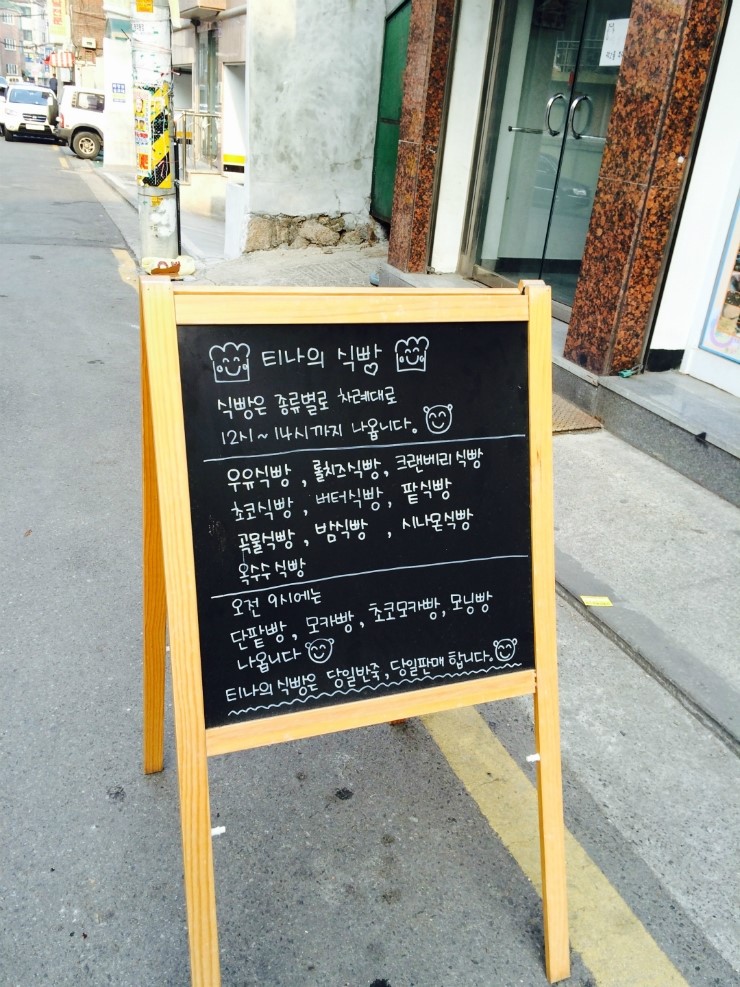 티나의 식빵
식빵은 종류별로 차례대로
12시~14시까지 나옵니다.
우유식빵, 롤치즈식빵, 크랜베리 식빵
초코식빵, 버터식빵, 팥식빵
곡물식빵, 밤식빵, 시나몬식빵
옥수수식빵
오전 9시에는
단팥빵, 모카빵, 초코모카빵, 모닝빵
나옵니다
티나의 식빵은 당일반죽, 당일판매 합니다.